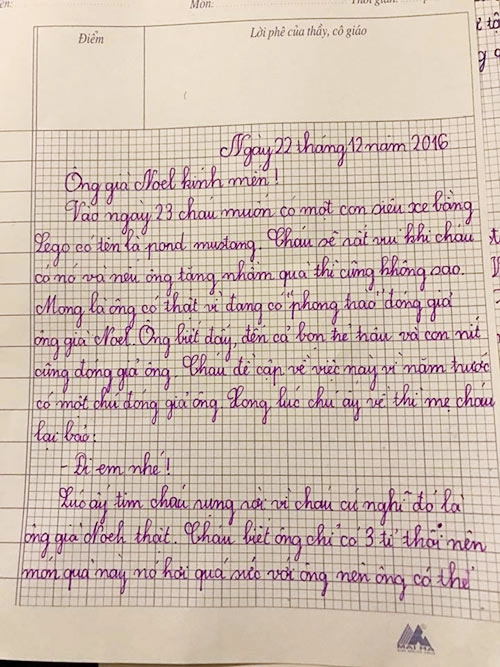 Môn:
Điểm
Lời phê của thầy, cô giáo
Ngày 22 tháng 12 năm 2016
Ông già Noel kính mến!
Vào ngày 23 cháu muốn có một con siêu xe bằng
Lego có tên là pond mustang. Cháu sẽ rất vui khi cháu
có nó và nếu ông tặng nhầm quà thì cũng không sao.
Mong là ông có thật vì đang có "phong trào" đóng giả
ông già Noel. Ông biết đấy, đến cả bọn hề hâu và con nít
cũng đóng giả ông. Cháu đề cập về việc này vì năm trước
có một chú đóng giả ông. Xong lúc chú ấy về thì mẹ cháu
lại bảo:
- Đi em nhé!
Lúc ấy tim cháu rụng rời vì cháu cứ nghĩ đó là
ông già Noel thật. Cháu biết ông chỉ có 3 tỉ thôi nên
món quà này nó hơi quá sức với ông nên ông có thể
MAI HA